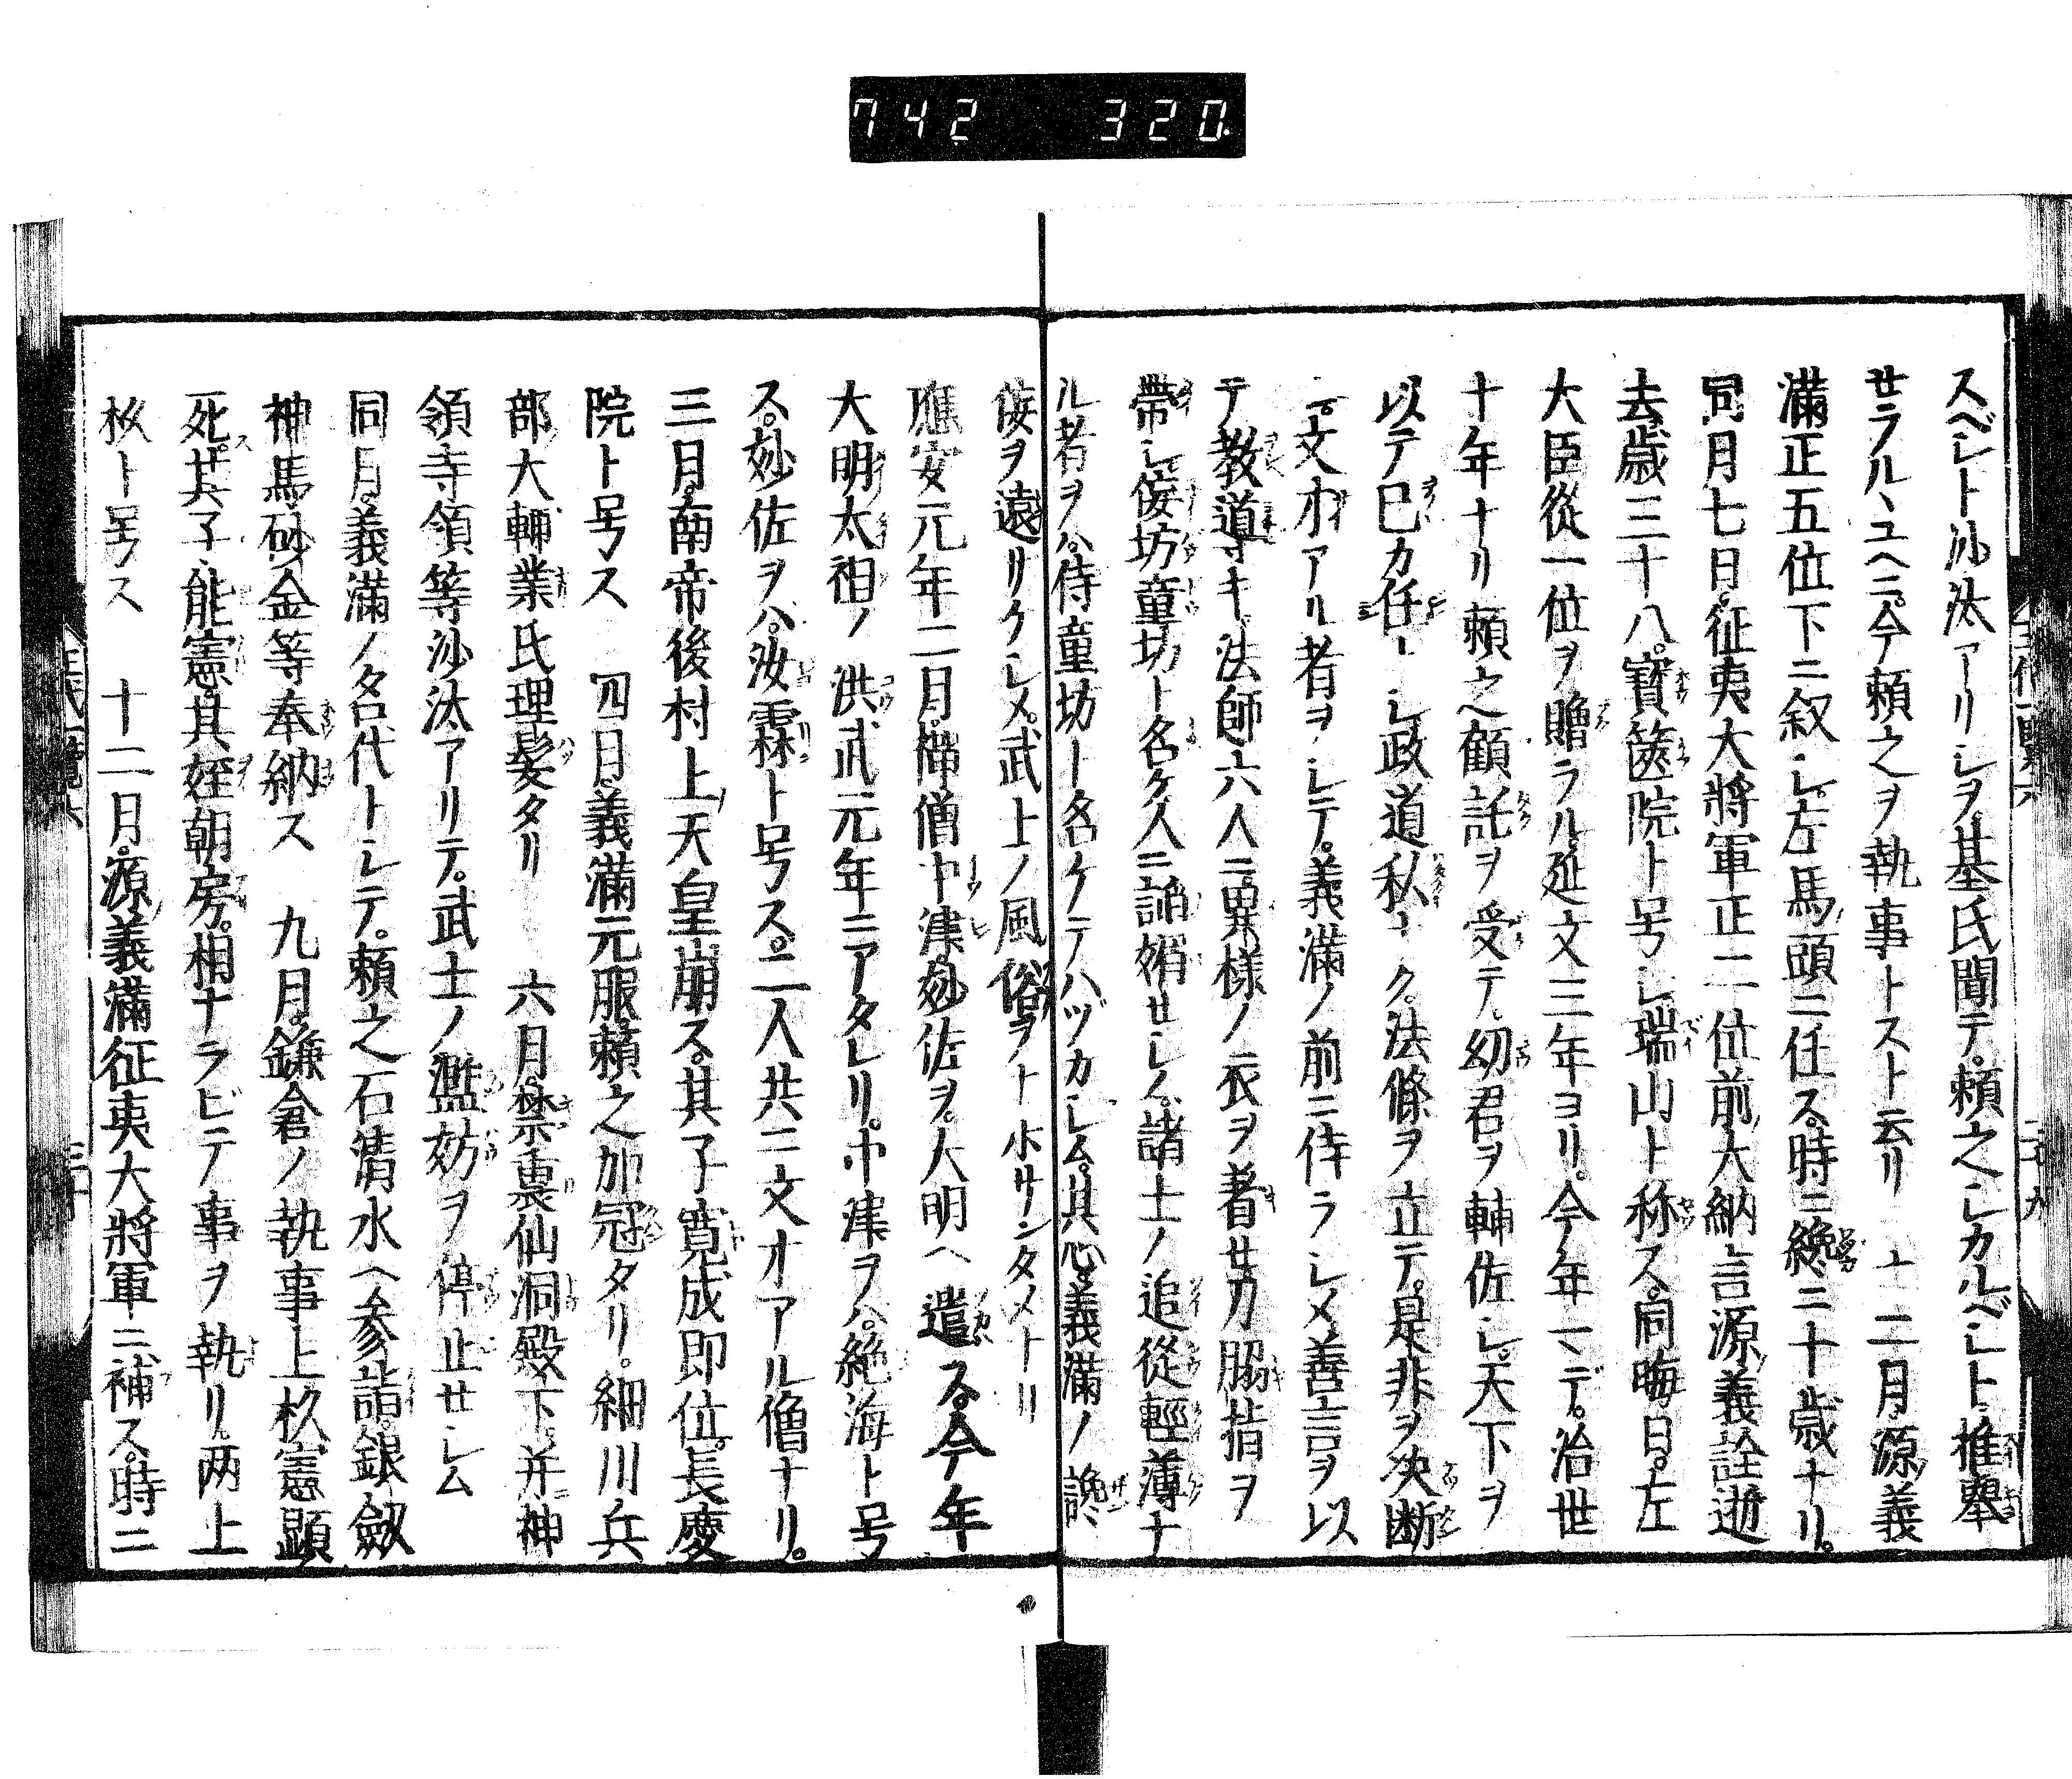 742 320
スベシト沙汰アリシヲ。基氏聞テ。頼之シカルベシト推擧
セラル、ユヘニ。今頼之ヲ執事トスト云リ 十二月。源義
滿正五位下ニ叙シ。左馬頭ニ任ス。時ニ纔ニ十歳ナリ。
同月七日。征夷大將軍正二位前大納言源義詮逝
去。歳三十八。寶篋院ト号シ瑞山ト称ス。同晦日。左
大臣從一位ヲ贈ラル。延文三年ヨリ。今年マデ。治世
十年ナリ頼之顧託ヲ受テ。幼君ヲ輔佐シ。天下ヲ
以テ己カ任トシ政道私ナク。法條ヲ立テ。是非ヲ決断
ニ。文才アル者ヲシテ。義滿ノ前ニ侍ラシメ善言ヲ以
テ教道キ。法師六人ニ異様ノ衣ヲ著セ刀脇指ヲ
帶シ佞坊童坊ト名ケ人ニ諂媚セシム。諸士ノ追從輕薄ナ
ル者ヲハ。侍童坊ト名ケテハヅカシム。其心義滿ノ讒
佞ヲ遠リケシメ。武士ノ風俗ヲナホサンタメトナリ
應安元年二月。禅僧中津妙佐ヲ。大明ヘ遣ス。今年
大明太祖ノ洪武元年ニアタレリ。中津ヲハ。絶海ト号
ス。妙佐ヲハ。汝霖ト号ス。二人共ニ文才アル僧ナリ。
三月。南帝後村上天皇崩ス。其子寛成即位。長慶
院ト号ス 四月。義滿元服頼之加冠タリ。細川兵
部大輔業氏理髪タリ 六月。禁裏仙洞殿下。并神
領寺領等沙汰アリテ。武士ノ濫妨ヲ停止セシム
同月。義滿ノ名代トシテ。頼之石清水ヘ参詣。銀劔
神馬砂金等奉納ス 九月。鎌倉ノ執事上杦憲顕
死。其子能憲。其姪朝房。相ナラビテ事ヲ執リ。两上
杦ト号ス 十二月。源義滿征夷大將軍ニ補ス。時ニ